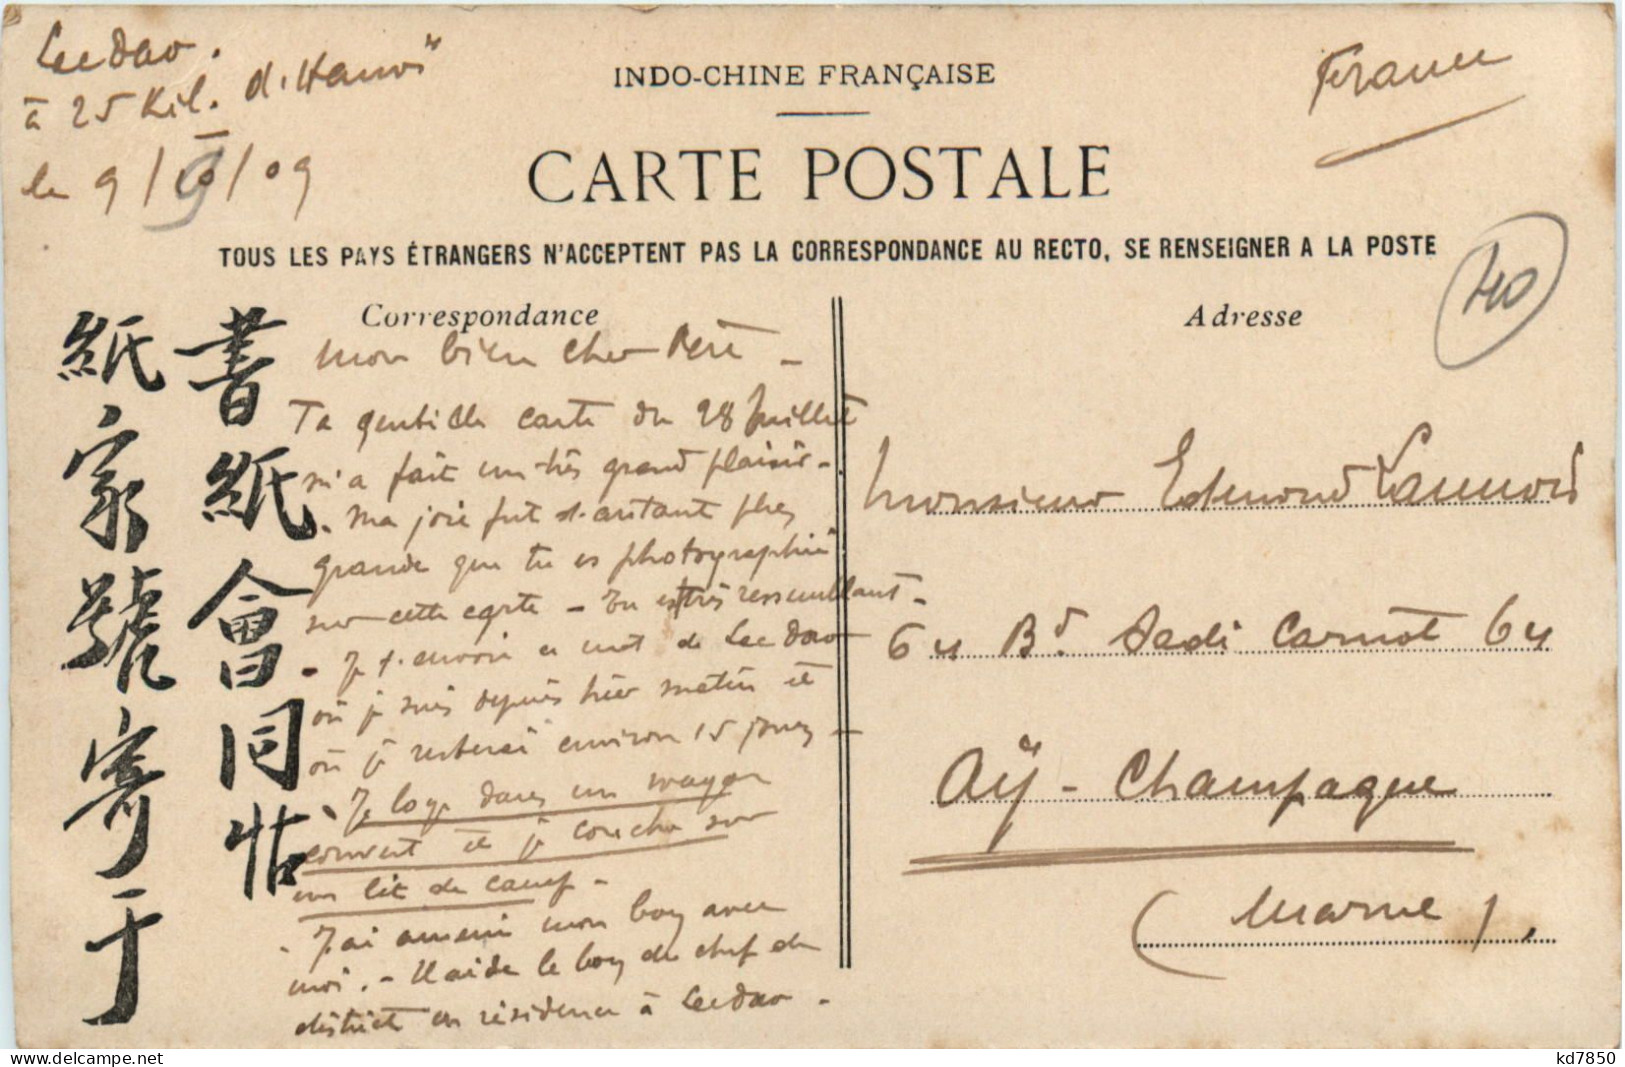 Lecdao.
à 25 Kil. d'Hanoï
le 9/9/09
INDO-CHINE FRANÇAISE
France
CARTE POSTALE
TOUS LES PAYS ÉTRANGERS N'ACCEPTENT PAS LA CORRESPONDANCE AU RECTO, SE RENSEIGNER A LA POSTE
40
書紙會同帖
紙家號寄于
Correspondance
mon bien cher Père -
Ta gentille carte du 28 Juillet
m'a fait un très grand plaisir -
- Ma joie fut d'autant plus
grande que tu es photographié
sur cette carte - Tu es très ressemblant -
- Je t'envoie ce mot de Lecdao
où je suis depuis hier matin et
où je resterai environ 15 jours -
Je loge dans un wagon
couvert et je couche sur
un lit de camp -
- J'ai amené mon boy avec
moi. - Il aide le boy du chef de
district en résidence à Lecdao -
Adresse
Monsieur Edmond Launois
64 Bd Sadi Carnot 64
Aÿ - Champagne
(Marne).
kd7850